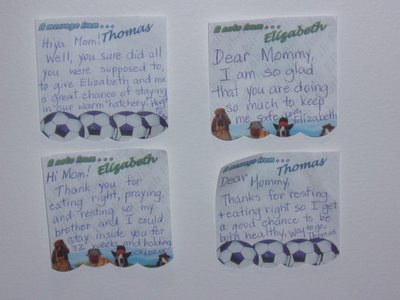 A message from...
Thomas
Hiya Mom!
Well, you sure did all
you were supposed to,
to give Elizabeth and me
a great chance of staying
in our warm "hatchery."
A note from...
Elizabeth
Dear Mommy,
I am so glad
that you are doing
so much to keep
me safe. Elizabeth
A note from...
Elizabeth
Hi Mom!
Thank you for
eating right, praying,
and resting so my
brother and I could
stay inside you for
32 weeks and holding.
A message from...
Thomas
Dear Mommy,
Thanks for resting
+ eating right so I get
a good chance to be
born healthy. Way to go,
Thomas